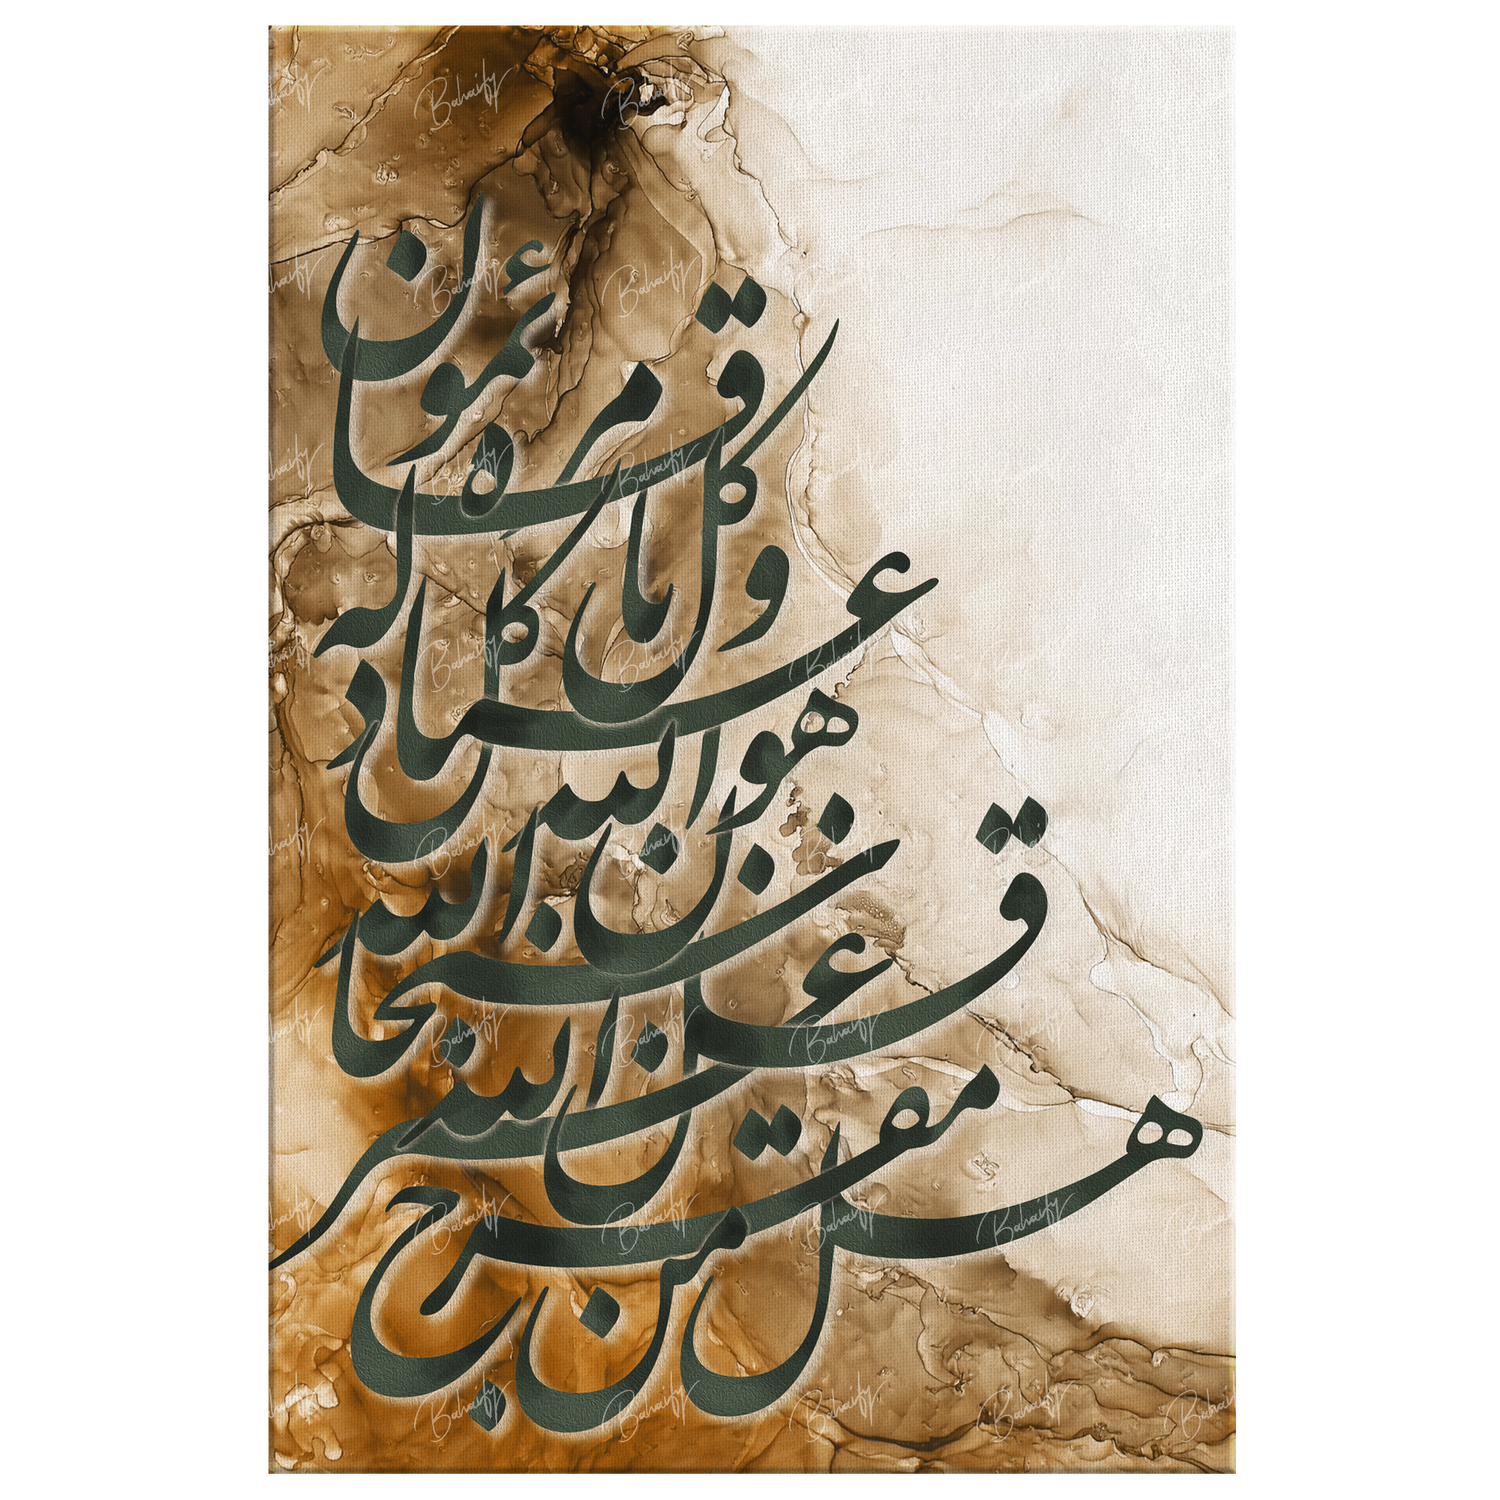 هل من مفرج
غير الله قل سبحان الله
هو الله كل عباد له
وكل بامره قائمون
Bahaify